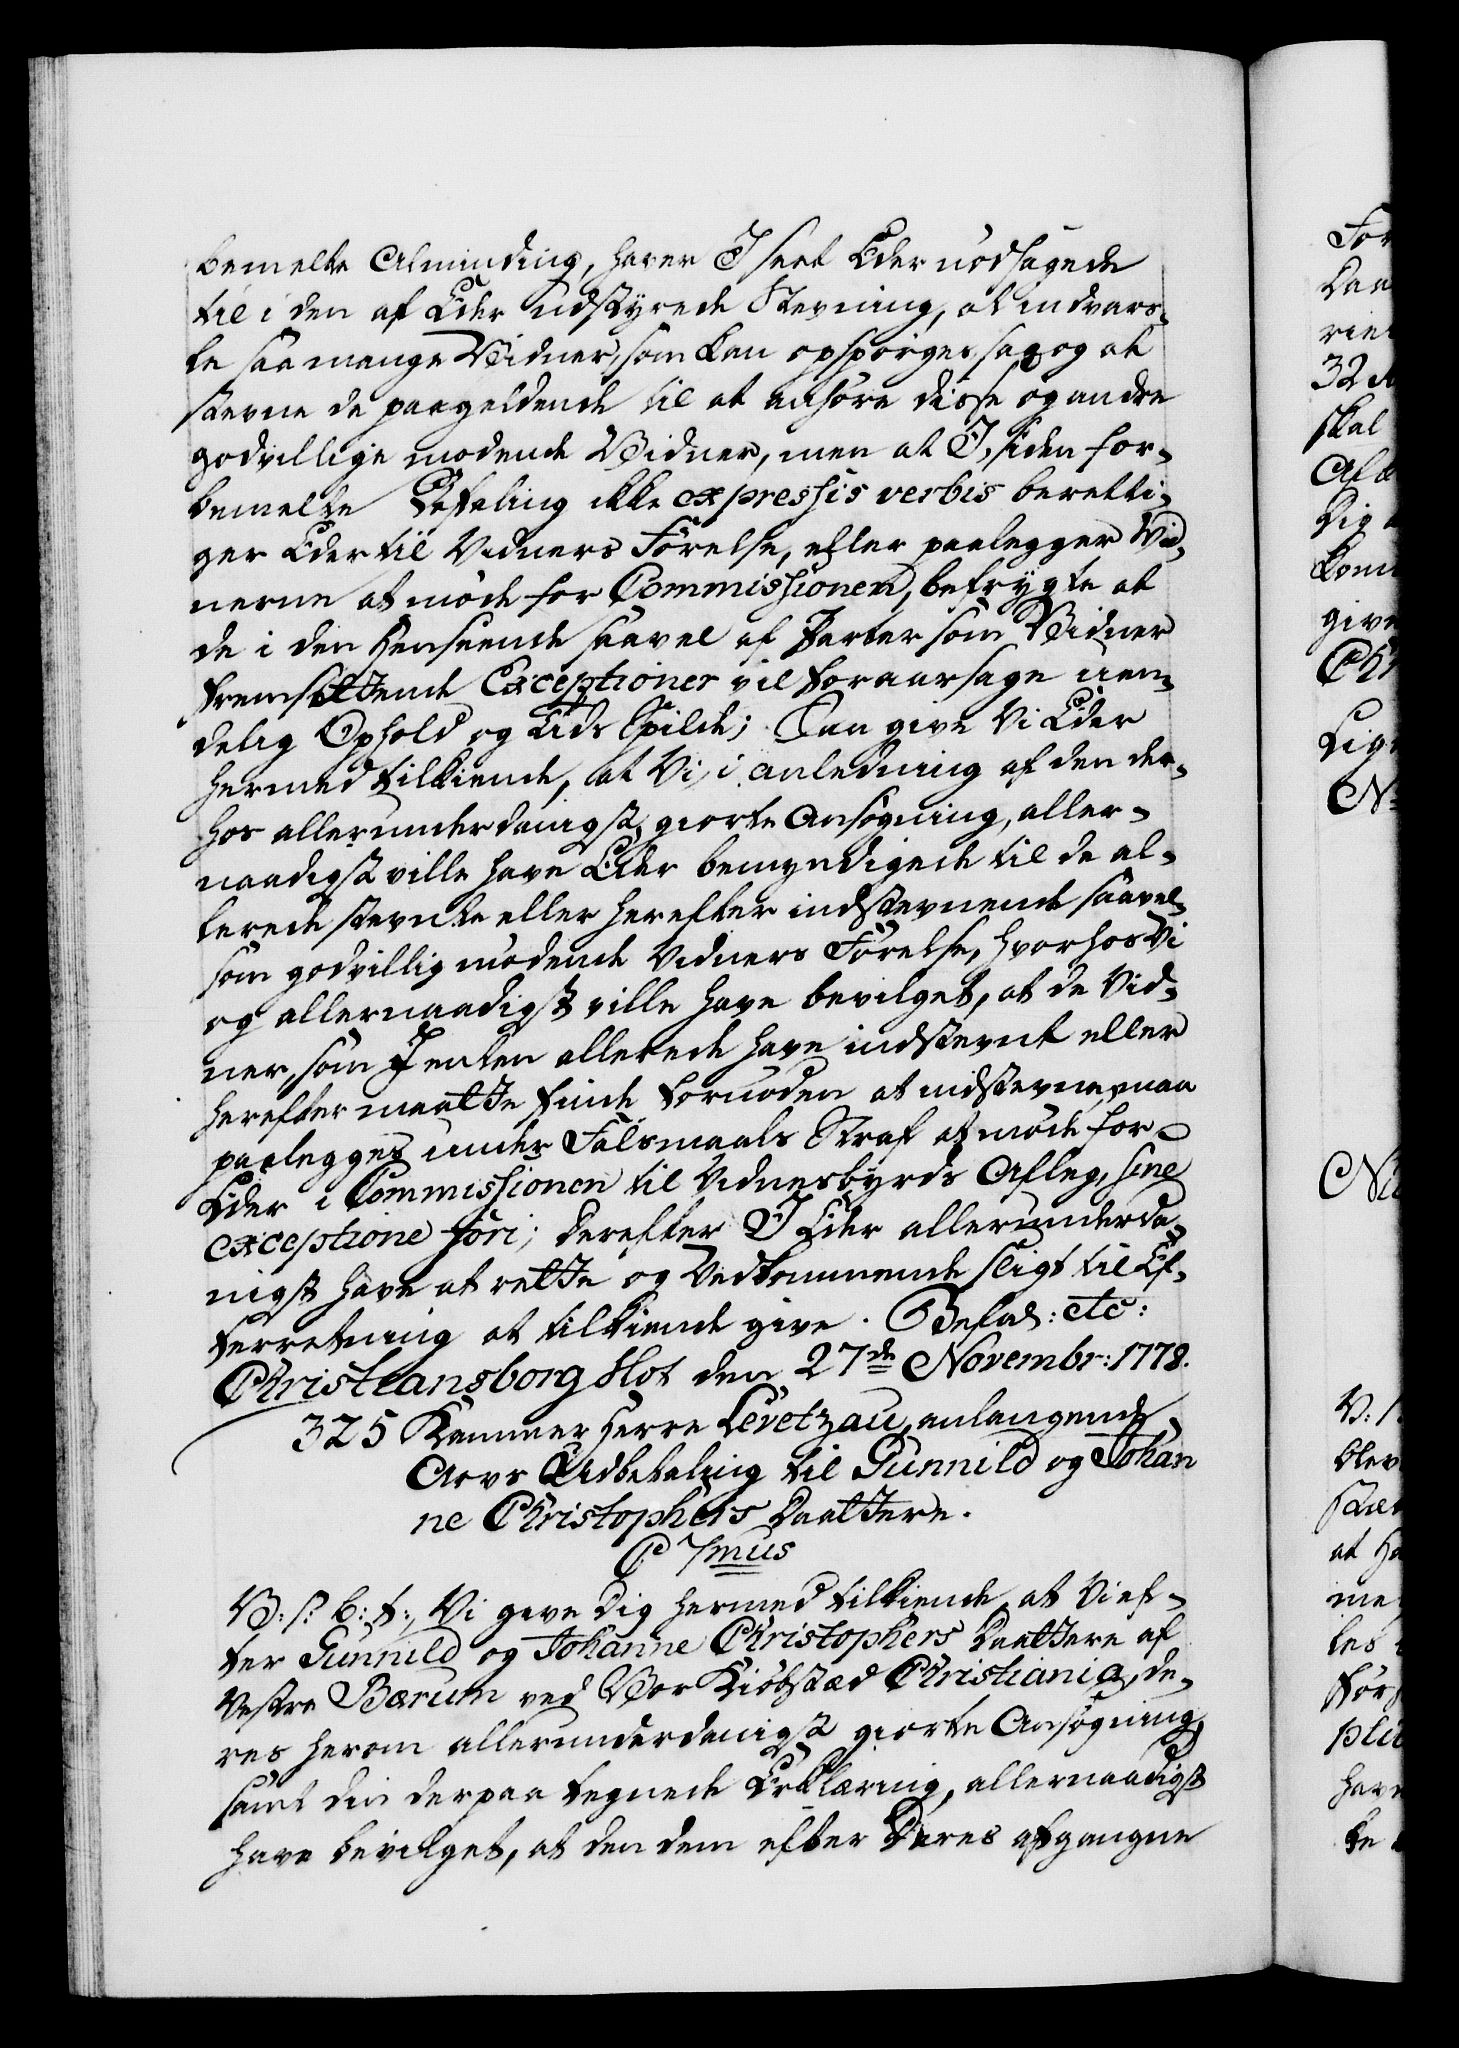 bemelte Alminding, haver I seet Eder nødsagede
til i den af Eder udstyrede Stevning, at indvars-
le saa mange Vidner, som kan opspørges, sag og at
stevne de paagieldende til at anhøre disse og andre
godvillige mødende Vidner, men at I, siden for-
bemelte Befaling ikke expressis verbis beretti-
ger Eder til Vidners Førelse, eller paalegger Vid-
nerne at møde for Commissionen, befrygte at
de i den Henseende saavel af Parter som Vidner
fremsættende Exceptioner vil foraarsage uen-
delig Ophold og Tids Spilde; Saa give Vi Eder
hermed tilkiende, at Vi, i anledning af den der-
hos allerunderdanigst giorte Ansøgning, aller-
naadigst ville have Eder bemyndigede til de al-
lerede stevnte eller herefter indstevnende saavel
som godvillig mødende Vidners Førelse, hvorhos Vi
og allernaadigst ville have bevilget, at de Vid-
ner, som I enten allerede have indstevnt eller
herefter maatte finde fornøden at indstevne, maa
paalegges under Falsmaals Straf at møde for
Eder i Commissionen til Vidnesbyrds Afleg, sine
exceptione fori; derefter I Eder allerunderda-
nigst have at rette og Vedkommende sligt til Ef-
terretning at tilkiende give. Befal: etc:
Christiansborg Slot den 27de Novembr: 1778.
325 Kammer Herre Levetzau, anlangende
Arvs Udbetaling til Gunnild og Johan
ne Christophers Daattere.
C 7mus
V: s: b: t:, Vi give Dig hermed tilkiende, at Vi ef-
ter Gunnild og Johanne Christophers Daattere af
Vestre Bærum ved Vor Kiøbstæd Christiania, de-
res herom allerunderdanigst giorte Ansøgning,
samt din derpaa tegnede Erklæring, allernaadigst
have bevilget, at den dem efter Deres afgangne